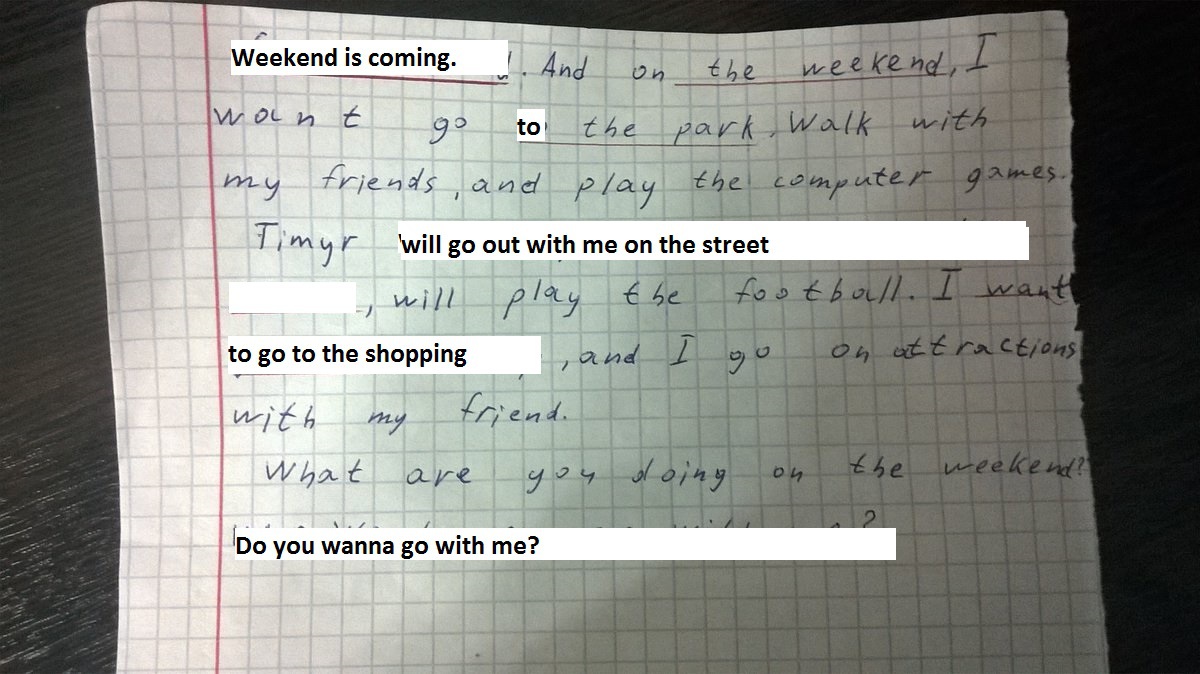 Weekend is coming. . And on the weekend, I
want go to the park. Walk with
my friends, and play the computer games.
Timyr will go out with me on the street
, will play the football. I want
to go to the shopping , and I go on attractions
with my friend.
What are you doing on the weekend?
Do you wanna go with me?